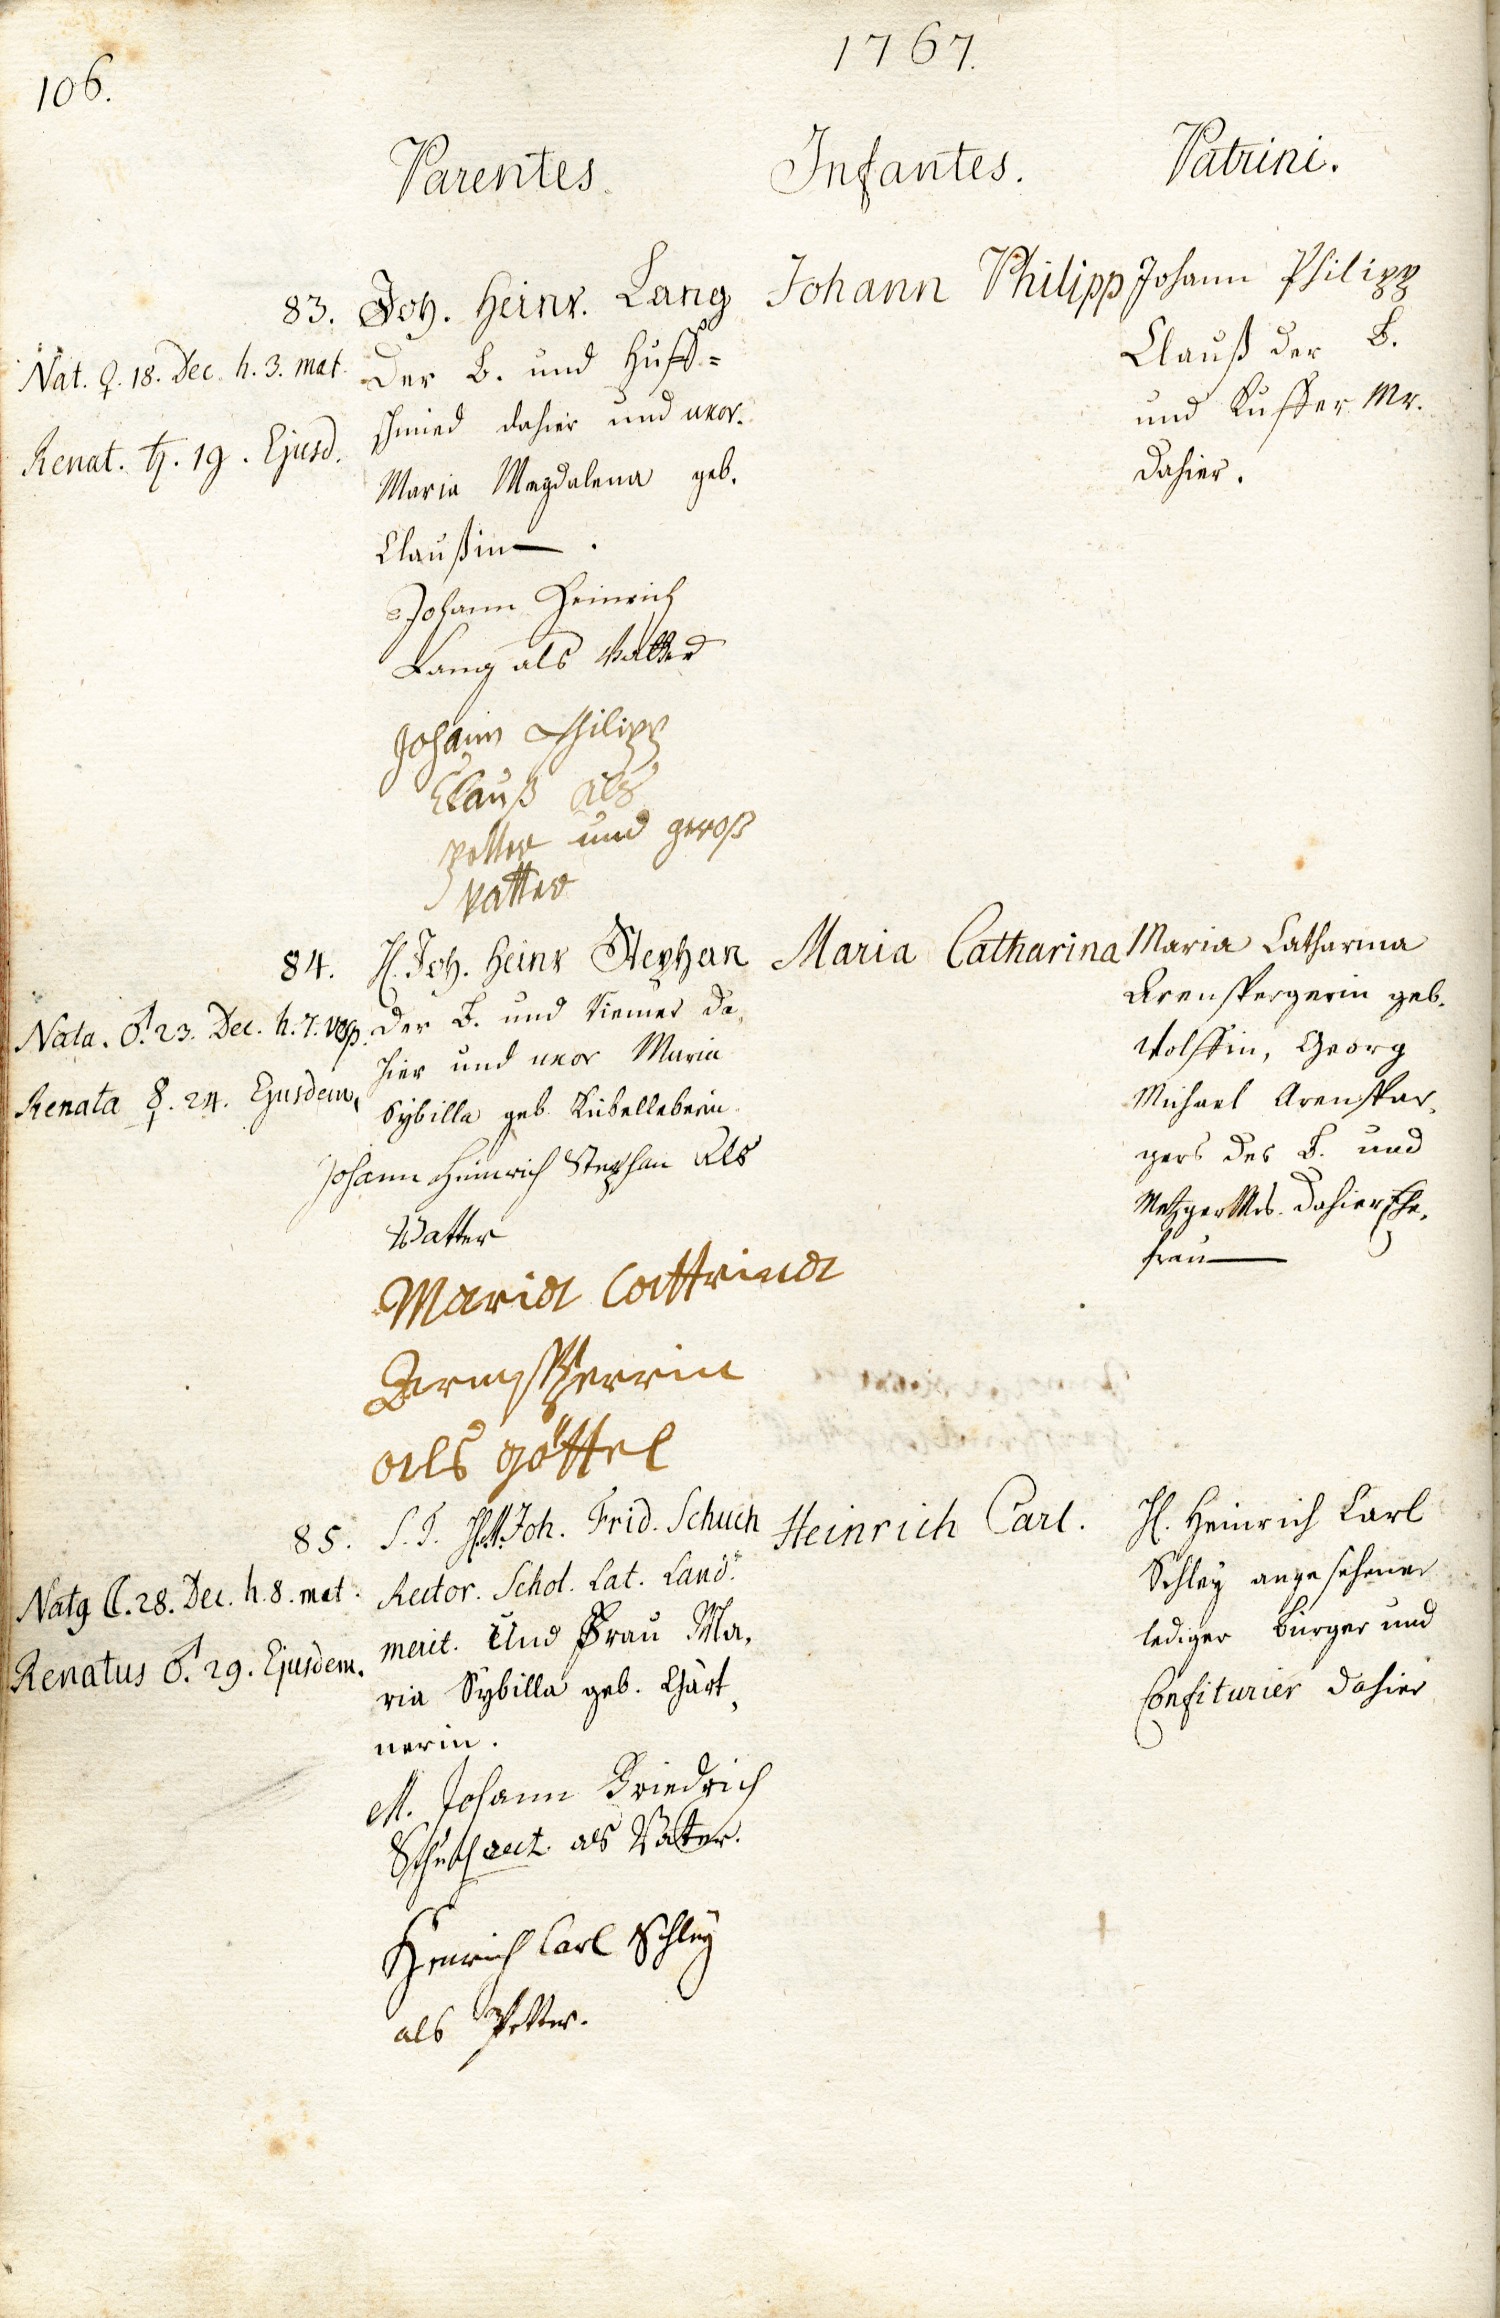 106.
1767.
Parentes.
Infantes.
Patrini.
83.
Nat. ♀. 18. Dec. h. 3. mat.
Renat. ♄. 19. Ejusd.
Joh. Heinr. Lang
der B. und Huff=
schmied dahier und uxor.
Maria Magdalena geb.
Claußin — .
Johann Heinrich
Lang als Vatter
Johann Philipp
Clauß als
petter und groß
vatter
Johann Philipp
Johann Philipp
Clauß der B.
und Kuffer Mr.
dahier.
84.
Nata. ♂. 23. Dec. h. 7. vesp.
Renata ☿. 24. Ejusdem.
H. Joh. Heinr Stephan
der B. und Riemer da,
hier und uxor Maria
Sybilla geb. Kübelleberin
Johann Heinrich Stephan als
Vatter
Maria Cattrina
als göttel
Maria Catharina
Maria Catharina
Arenspergerin geb.
Wolffin, Georg
Michael Arensper,
gers des B. und
Metzger Mrs. dahier Ehe,
frau —
85.
Nat9 ☾. 28. Dec. h. 8. mat.
Renatus ♂. 29. Ejusdem.
S. T. H. M. Joh. Frid. Schuch
Rector. Schol. Lat. Land.
merit. Und Frau Ma,
ria Sybilla geb. Gärt,
nerin.
M. Johann Friedrich
Schuch rect. als Vater.
Henrich Carl Schley
als Petter.
Heinrich Carl.
H. Heinrich Carl
Schley angesehener
lediger Bürger und
Confiturier dahier